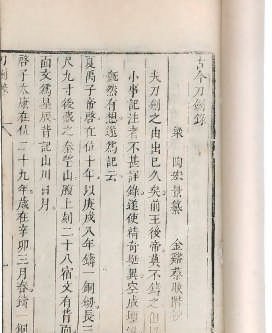 古今刀劍錄
梁 陶弘景纂 金谿蔡
夫刀劍之由出已久矣前王後帝莫不鑄之但
小事記注者不甚詳錄遂使精奇挺異空成
慨然有想遂爲記云
夏禹子帝啓在位十年以庚戌八年鑄一銅劍長三
尺九寸後藏之秦望山腹上刻二十八宿文有背面
面文爲星辰背記山川日月
啓子太康在位二十九年歲在辛卯三月春鑄一銅